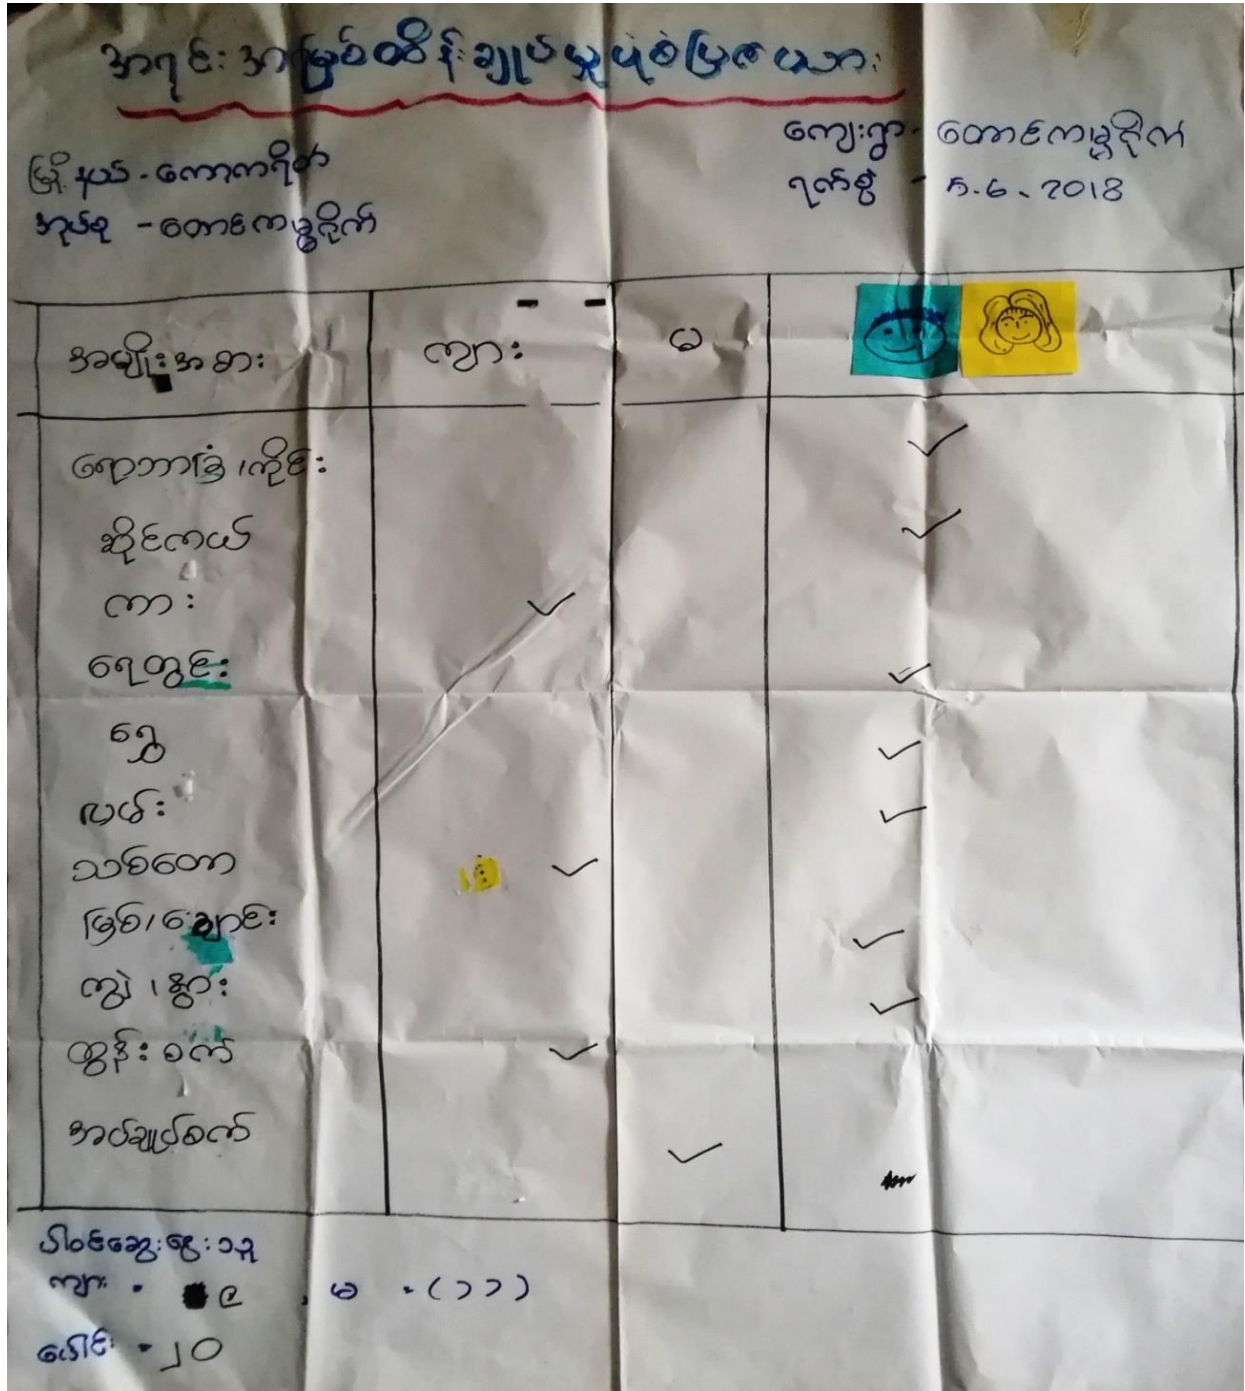 အရင်းအမြစ်ထိန်းချုပ်မှုပုံစံပြဇယား
မြို့နယ် - ကော့ကရိတ်
ကျေးရွာ - တောင်ကမ္ဘငိုက်
အုပ်စု - တောင်ကမ္ဘငိုက်
ရက်စွဲ - ၅.6.2018
အမျိုးအစား ကျား မ
ရော်ဘာခြံ၊ကိုင်း
ဆိုင်ကယ်
ကား
ရေတွင်း
ရွှေ
လမ်း
သစ်တော
မြစ်၊ချောင်း
ကျွဲ၊နွား
ထွန်းစက်
အပ်ချုပ်စက်
ပါဝင်ဆွေးနွေးသူ
ကျား - ၉ , မ - (၁၁)
ပေါင်း - ၂၀